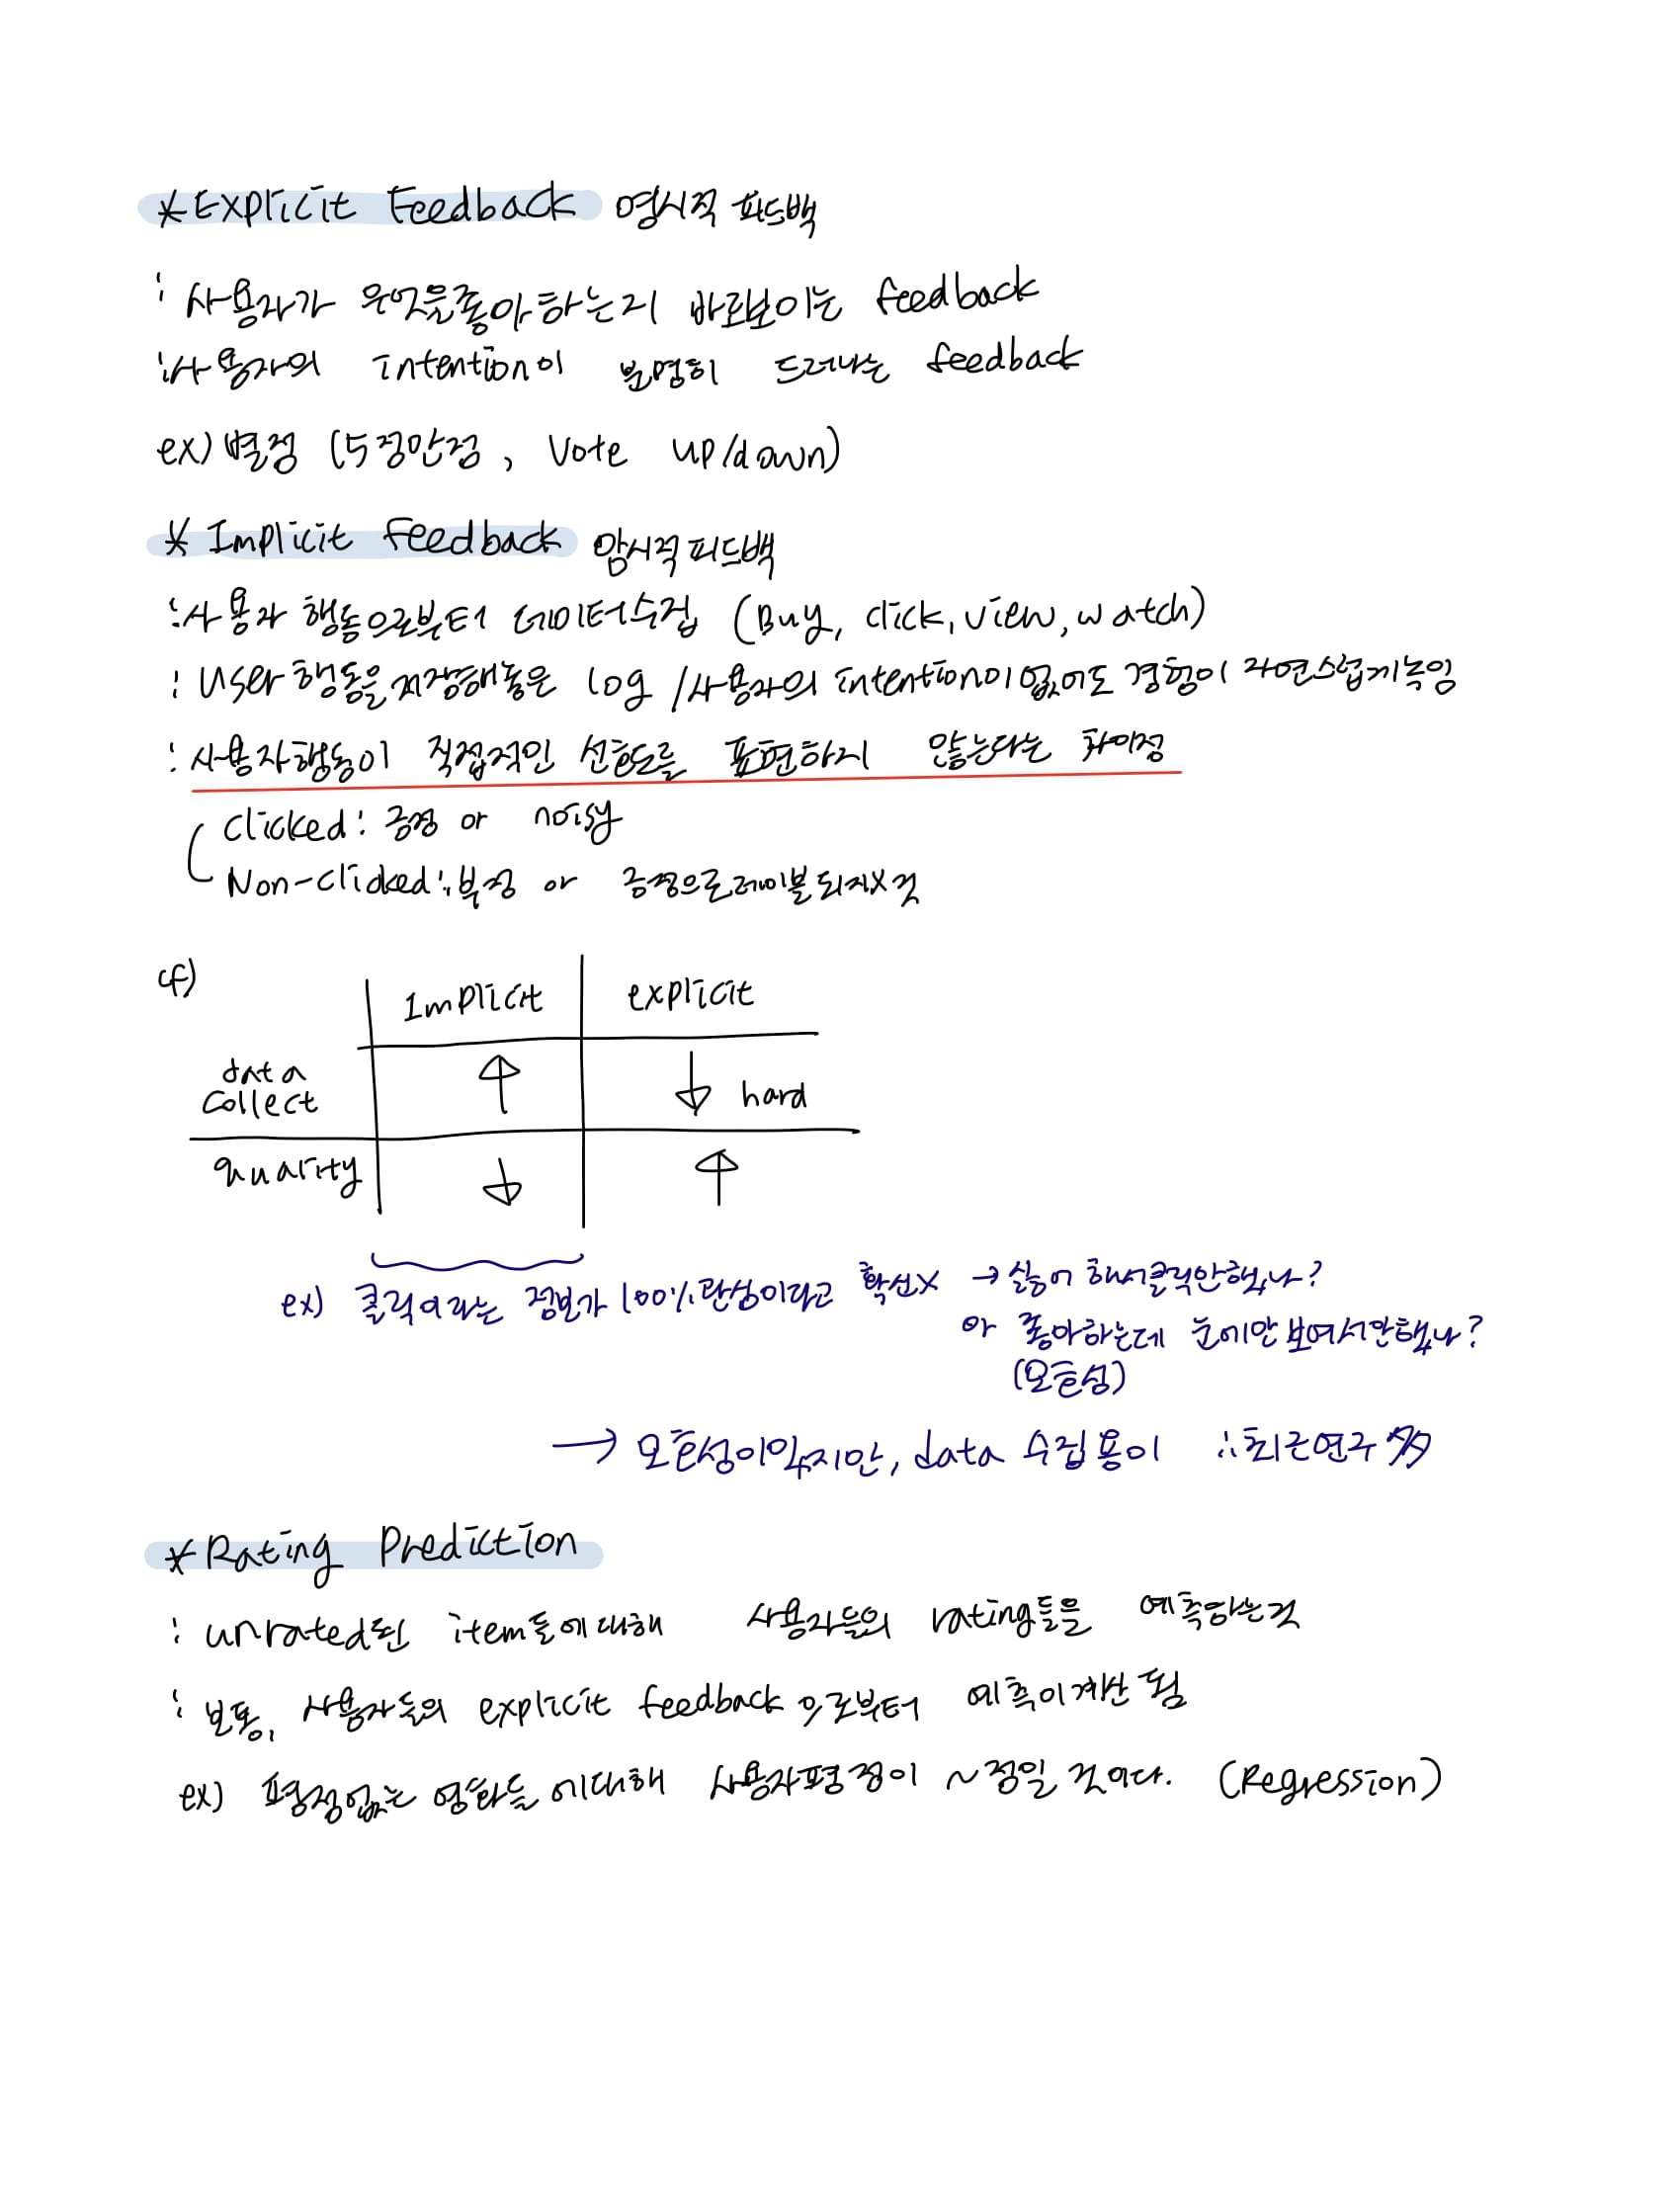 *Explicit Feedback 명시적 피드백
: 사용자가 무엇을좋아하는지 바로보이는 feedback
: 사용자의 intention이 분명히 드러나는 feedback
ex) 별점 (5점만점, Vote up/down)
* Implicit feedback 암시적피드백
: 사용자 행동으로부터 데이터수집 (Buy, click, view, watch)
: User행동을 저장해놓은 log / 사용자의 intention이없어도 경험이 자연스럽게녹임
: 사용자행동이 직접적인 선호도를 표현하지 않는다는
Clicked: 긍정 or noisy
Non-clicked: 부정 or 긍정으로레이블되지X것
cf)
Implicit explicit
data
collect ↑ ↓ hard
quality ↓ ↑
ex) 클릭이라는 정보가 100%관심이라고 확신X → 싫어해서클릭안했나?
or 좋아하는데 눈에안보여서안했나?
(모호성)
→ 모호성이있지만, data 수집용이 ∴최근연구 多
*Rating Prediction
: unrated된 item들에대해 사용자들의 rating들을 예측하는것
: 보통, 사용자들의 explicit feedback으로부터 예측이계산됨
ex) 평점없는 영화들에대해 사용자평점이 ~점일 것이다. (Regression)